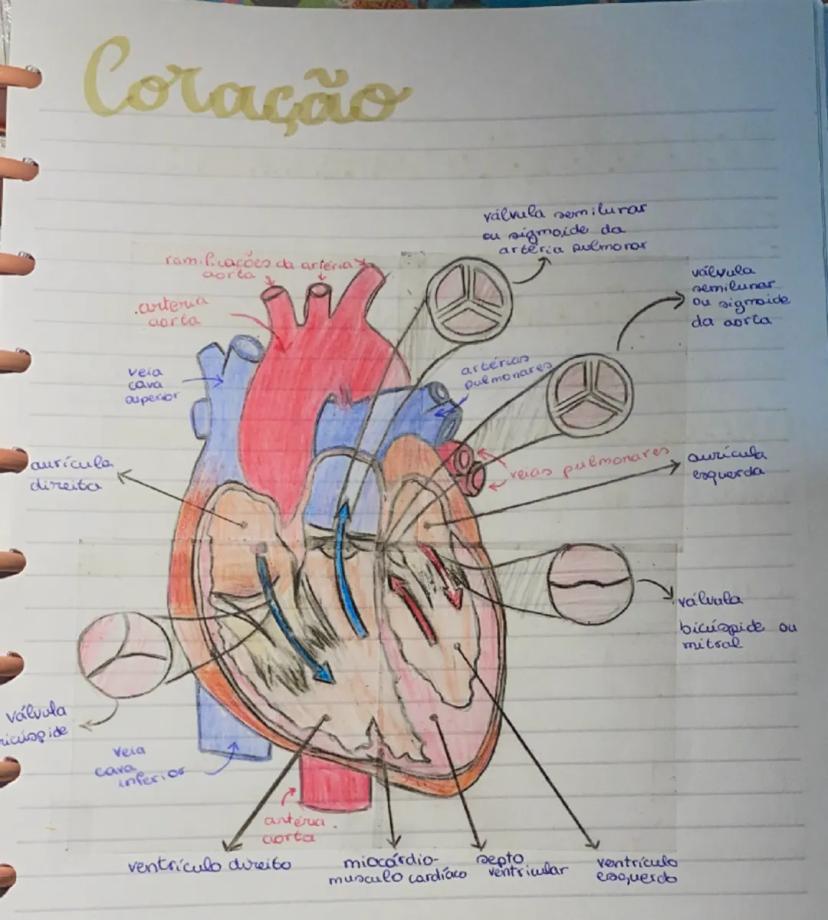 Coração
válvula semilunar
ou sigmoide da
artéria pulmonar
ramificações da artéria
aorta
artéria
aorta
válvula
semilunar
ou sigmoide
da aorta
veia
cava
superior
artérias
pulmonares
aurícula
direita
veias pulmonares
aurícula
esquerda
válvula
bicúspide ou
mitral
válvula
ricúspide
veia
cava
inferior
artéria
aorta
ventrículo direito
miocárdio-
musculo cardíaco
septo
ventricular
ventrículo
esquerdo